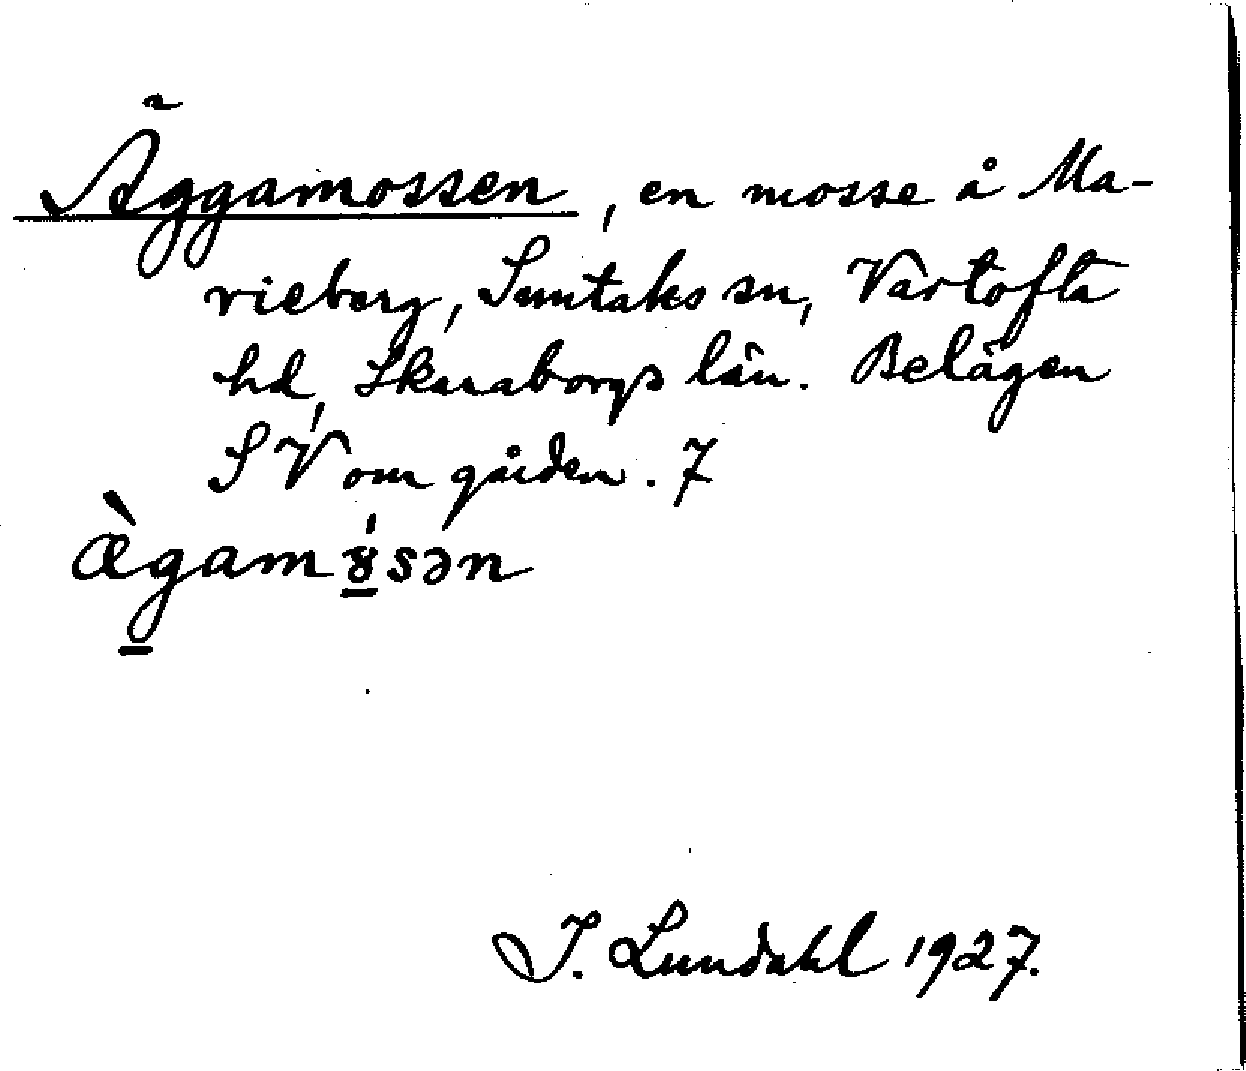 Äggamossen, en mosse å Ma-
rieberg, Suntaks sn, Vartofta
hd, Skaraborgs län. Belägen
SV om gården. 7
æ̀gamɤ́sən
I. Lundahl 1927.